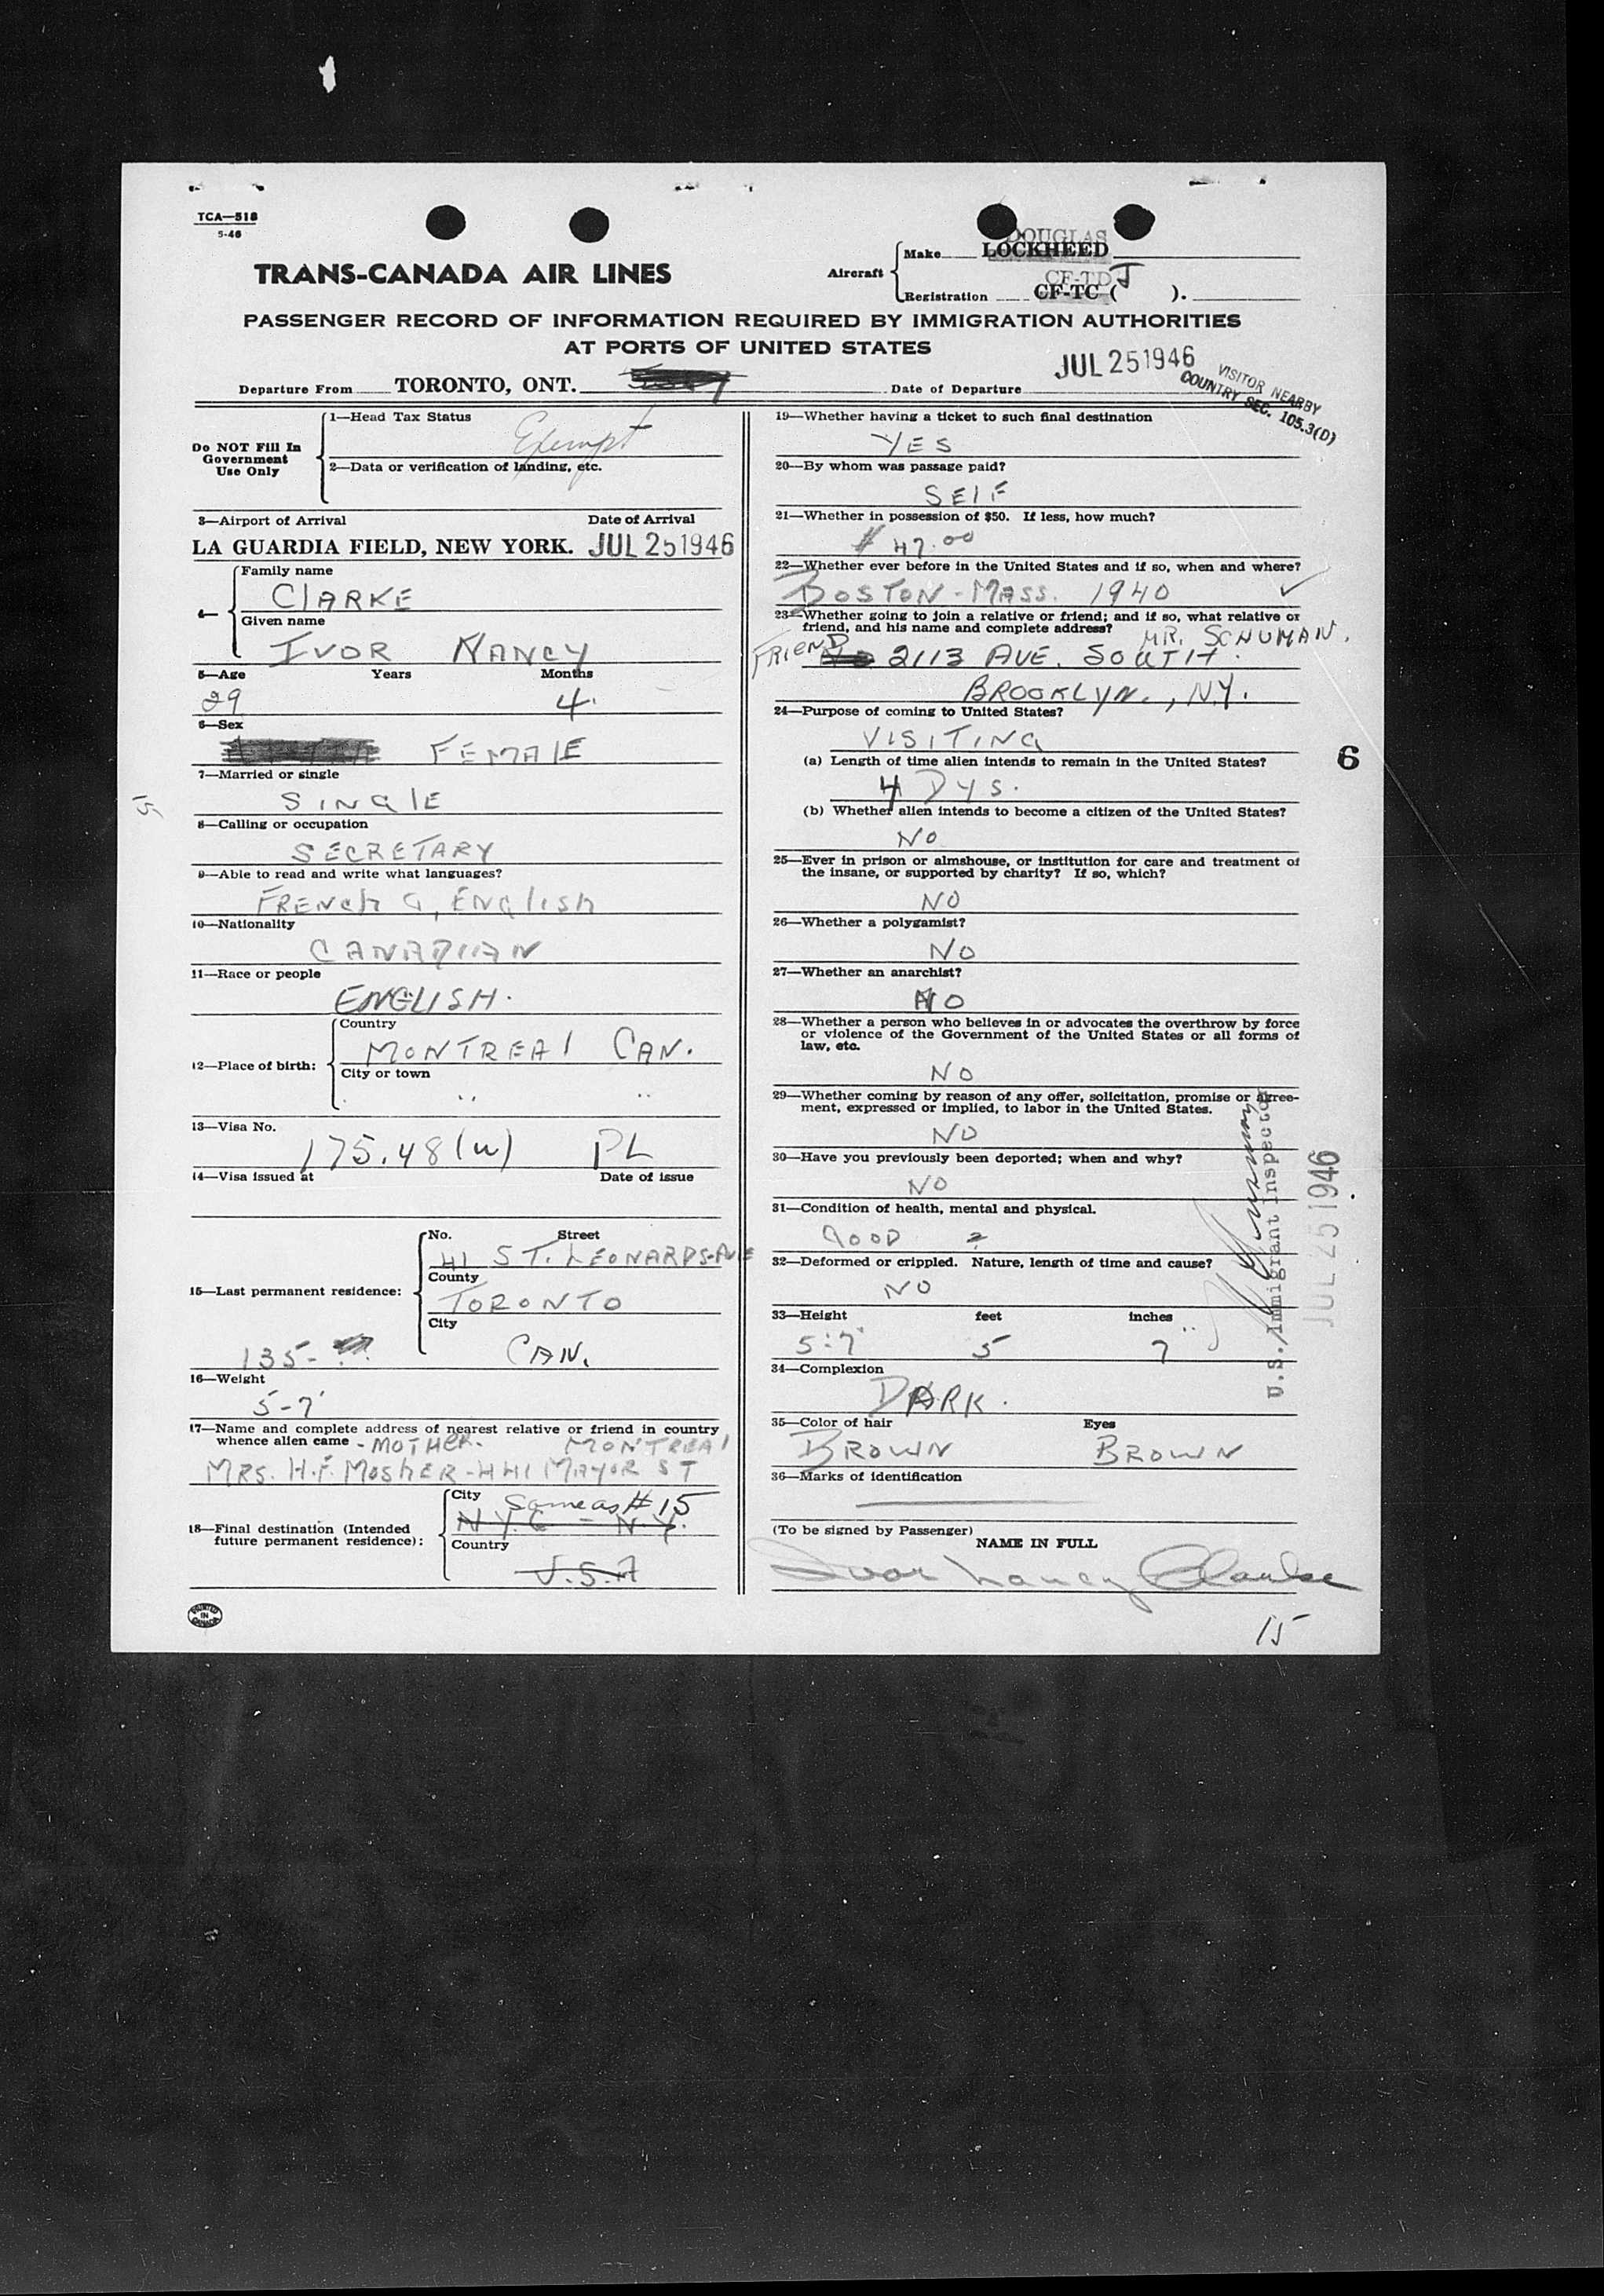 TCA—518
5-46
TRANS-CANADA AIR LINES
Aircraft
Make
DOUGLAS
LOCKHEED
CF-TD J
Registration CF-TC ( ).
PASSENGER RECORD OF INFORMATION REQUIRED BY IMMIGRATION AUTHORITIES
AT PORTS OF UNITED STATES
Departure From TORONTO, ONT. Date of Departure JUL 25 1946
VISITOR NEARBY
COUNTRY SEC. 105.3(D)
Do NOT Fill In
Government
Use Only
1—Head Tax Status
Exempt
2—Data or verification of landing, etc.
3—Airport of Arrival Date of Arrival
LA GUARDIA FIELD, NEW YORK. JUL 25 1946
4—
Family name
CLARKE
Given name
IVOR NANCY
5—Age Years Months
29 4.
6—Sex
FEMALE
7—Married or single
SINGLE
8—Calling or occupation
SECRETARY
9—Able to read and write what languages?
FRENCH &, ENGLISH
10—Nationality
CANADIAN
11—Race or people
ENGLISH.
12—Place of birth:
Country
MONTREAL CAN.
City or town
" "
13—Visa No.
175.48(w) PL
14—Visa issued at Date of issue
15—Last permanent residence:
No. Street
41 ST. LEONARDS-AVE
County
TORONTO
City
CAN.
135-
16—Weight
5-7'
17—Name and complete address of nearest relative or friend in country
whence alien came - MOTHER. MONTREAL
MRS. H.F. MOSHER - 441 MAYOR ST
18—Final destination (Intended
future permanent residence):
City Same as #15
N.Y.C - N.Y.
Country
U.S.A
PRINTED
IN
CANADA
19—Whether having a ticket to such final destination
YES
20—By whom was passage paid?
SELF
21—Whether in possession of $50. If less, how much?
$ 47.00
22—Whether ever before in the United States and if so, when and where?
BOSTON - MASS. 1940 ✓
23—Whether going to join a relative or friend; and if so, what relative or
friend, and his name and complete address? MR. SCHUMAN.
FRIEND 2113 AVE. SOUTH.
BROOKLYN., N.Y.
24—Purpose of coming to United States?
VISITING
(a) Length of time alien intends to remain in the United States?
4 DYS.
(b) Whether alien intends to become a citizen of the United States?
NO
25—Ever in prison or almshouse, or institution for care and treatment of
the insane, or supported by charity? If so, which?
NO
26—Whether a polygamist?
NO
27—Whether an anarchist?
NO
28—Whether a person who believes in or advocates the overthrow by force
or violence of the Government of the United States or all forms of
law, etc.
NO
29—Whether coming by reason of any offer, solicitation, promise or agree-
ment, expressed or implied, to labor in the United States.
NO
30—Have you previously been deported; when and why?
NO
31—Condition of health, mental and physical.
GOOD
32—Deformed or crippled. Nature, length of time and cause?
NO
33—Height feet inches
5:7 5 7"
34—Complexion
DARK.
35—Color of hair Eyes
BROWN BROWN
36—Marks of identification
(To be signed by Passenger)
NAME IN FULL
Ivor Nancy Clarke
U.S. Immigrant Inspector
JUL 25 1946
6
15
15